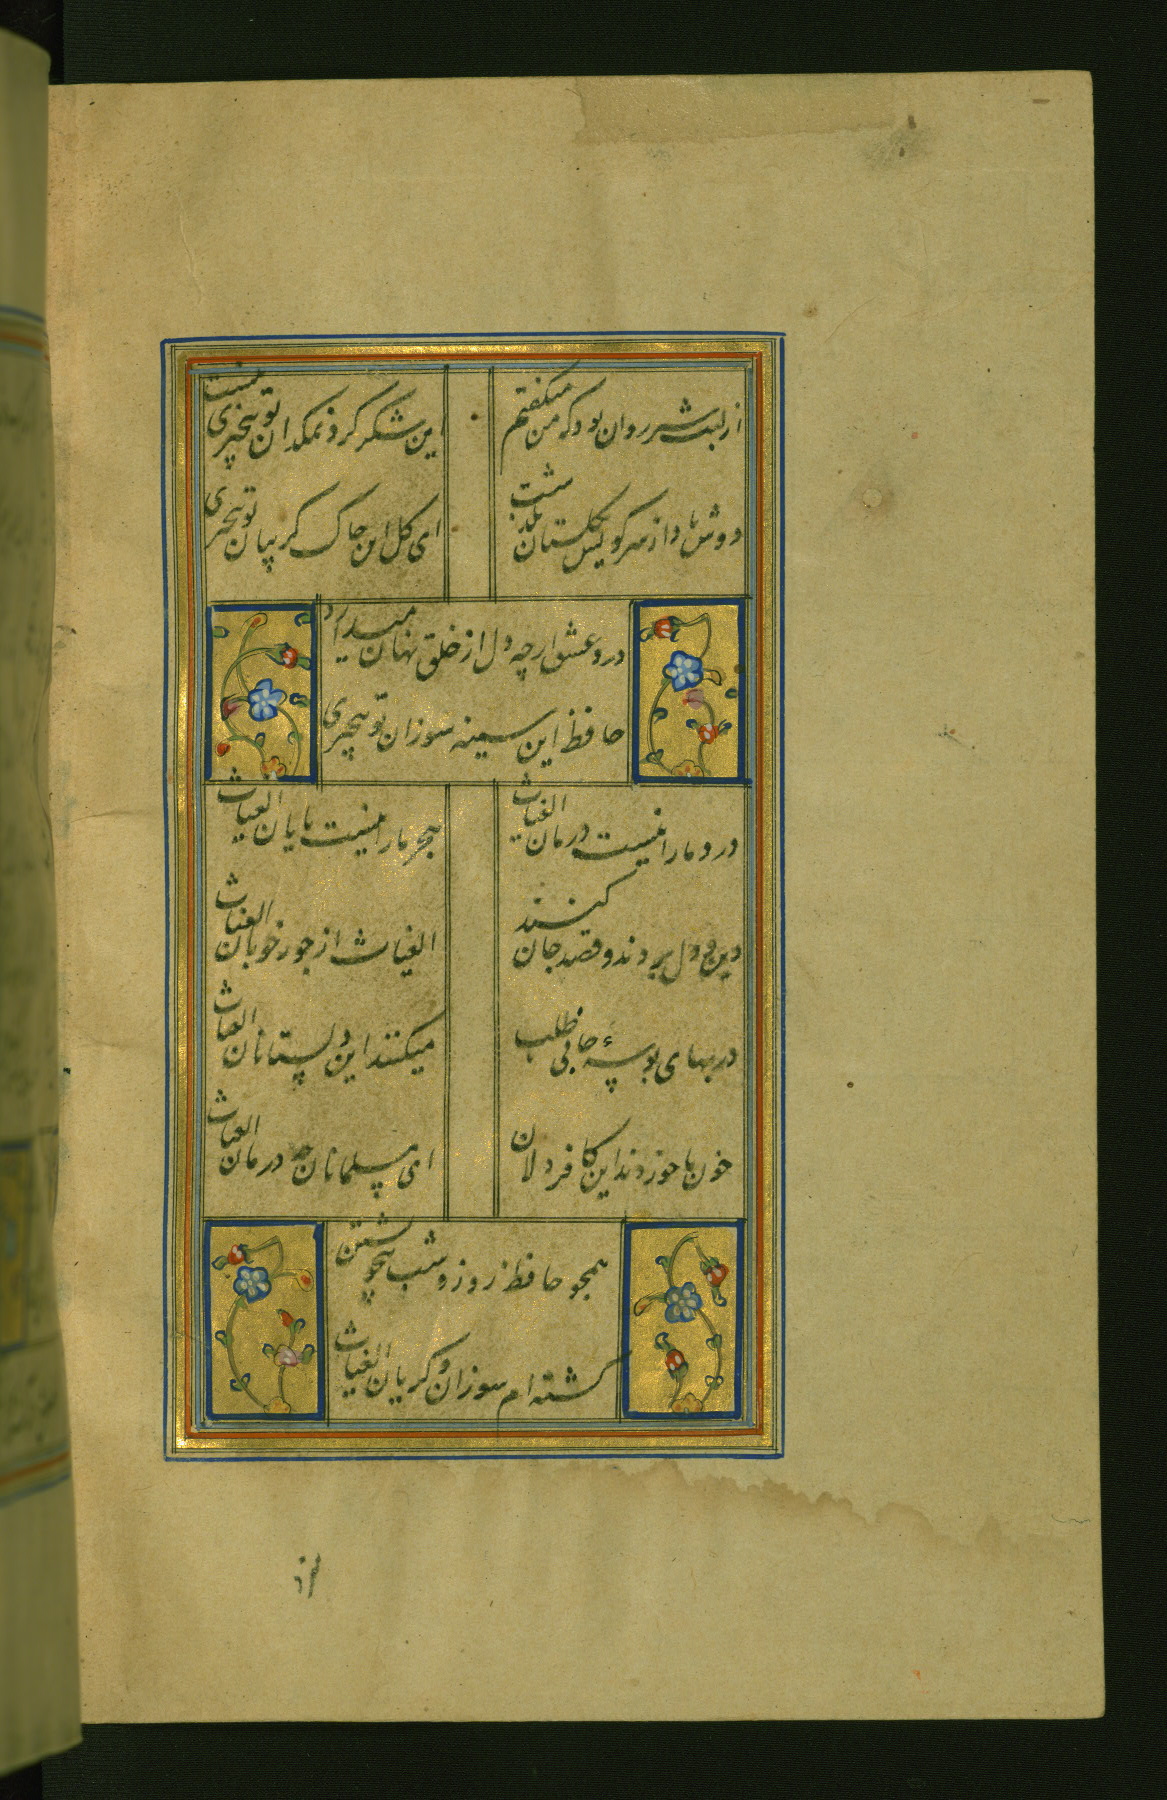 از لبت شیر روان بود که من میگفتم
این شکر گرد نمکدان تو بیچیزی نیست
دوش باد از سر کویش بگلستان بگذشت
ای گل این چاک گریبان تو بیچیزی
درد عشق ارچه دل از خلق نهان میدارد
حافظ این سینه سوزان تو بیچیزی
درد ما را نیست درمان الغیاث
هجر ما را نیست پایان الغیاث
دین و دل بردند و قصد جان کنند
الغیاث از جور خوبان الغیاث
در بهای بوسهٔ جانی طلب
میکنند این دلستانان الغیاث
خون ما خوردند این کافر دلان
ای مسلمانان چه درمان الغیاث
همچو حافظ روز و شب بیخویشتن
گشته ام سوزان و گریان الغیاث